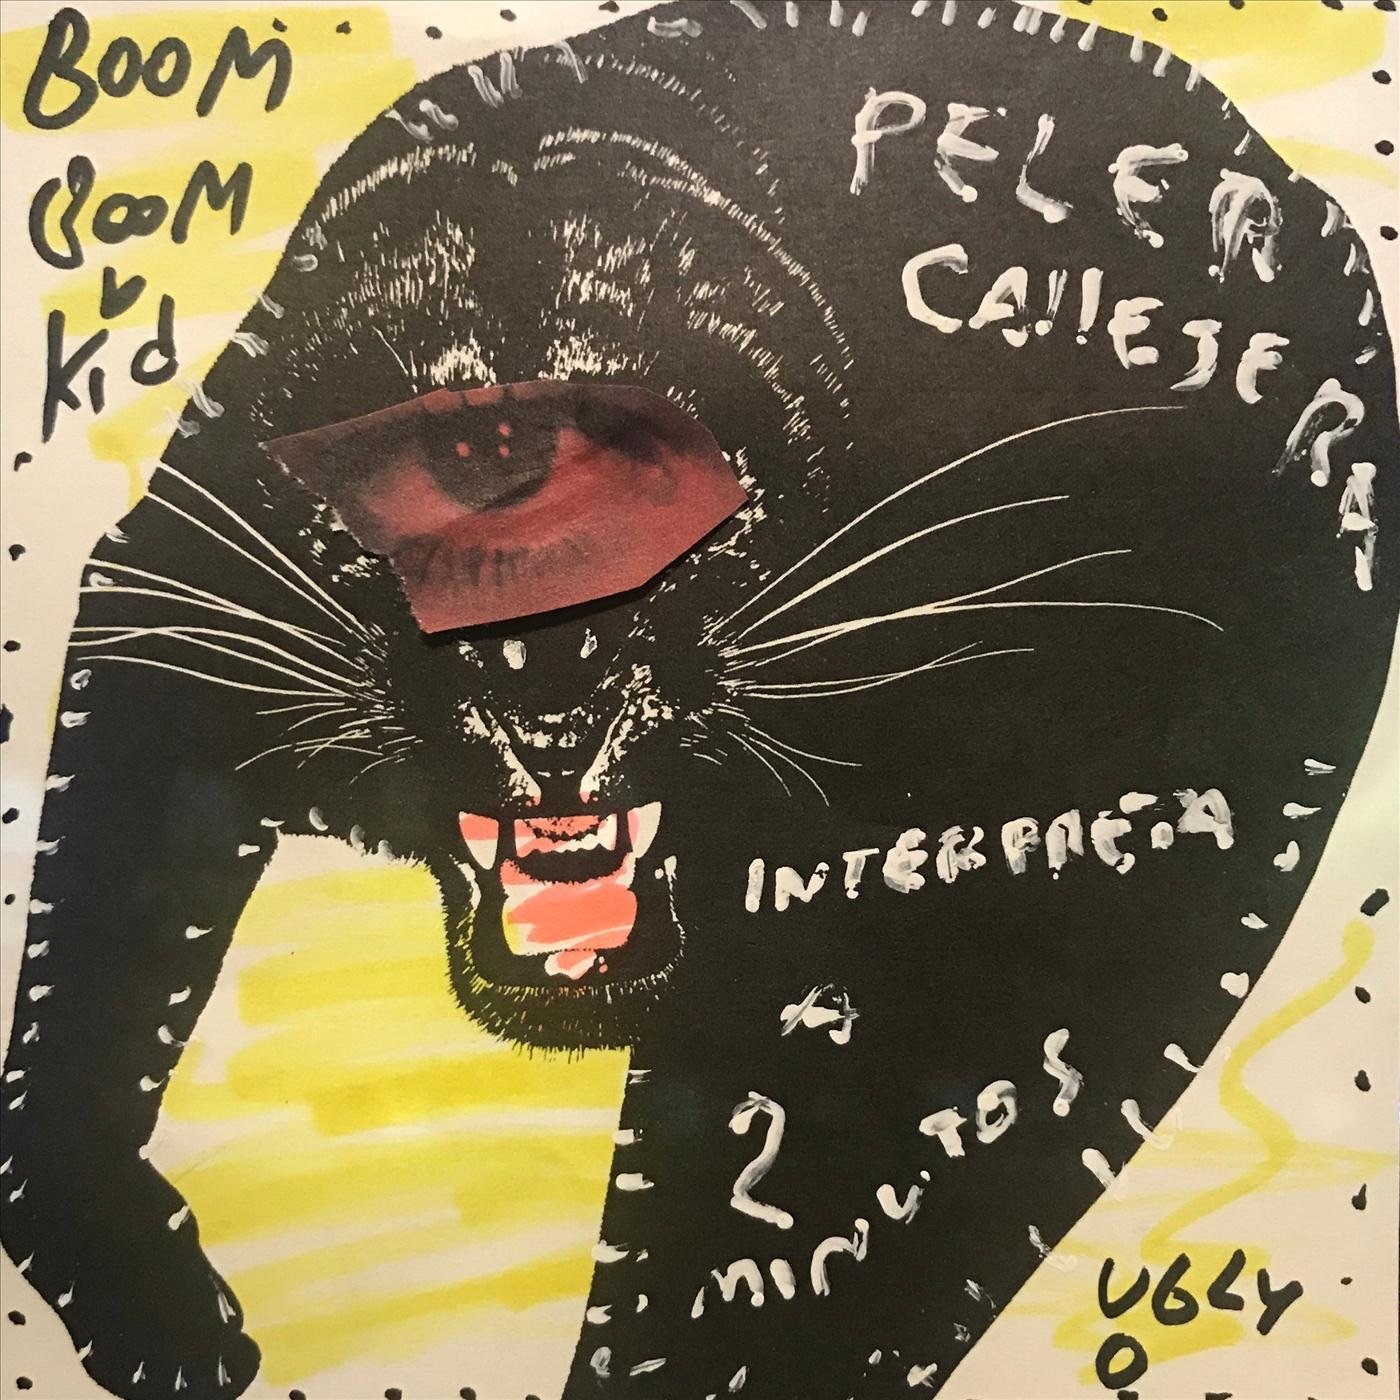 BOOM
BOOM
Kid
PELEA
CALLEJERA
INTERPRETA
A
2
MINUTOS
UGLY
O